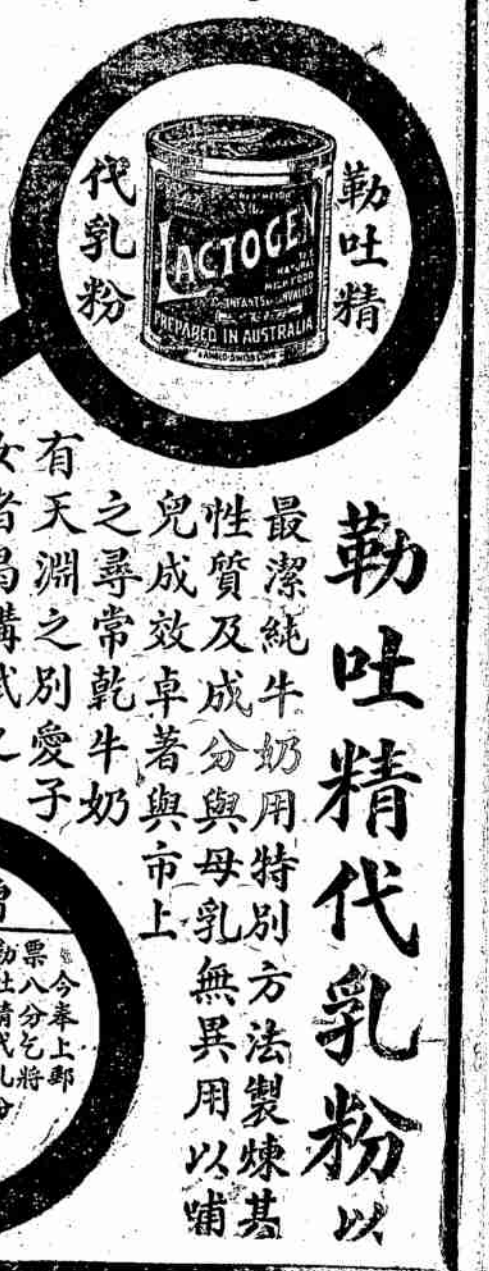 勒吐精
代乳粉
LACTOGEN
NATURAL
MILK FOOD
INFANTS INVALIDS
PREPARED IN AUSTRALIA
勒吐精代乳粉以
最潔純牛奶用特別方法製煉其
性質及成分與母乳無異用以哺
兒成效卓著與市上
之尋常乾牛奶
有天淵之別愛子
女者曷購試
今奉上郵
票八分乞將
吐精代乳粉